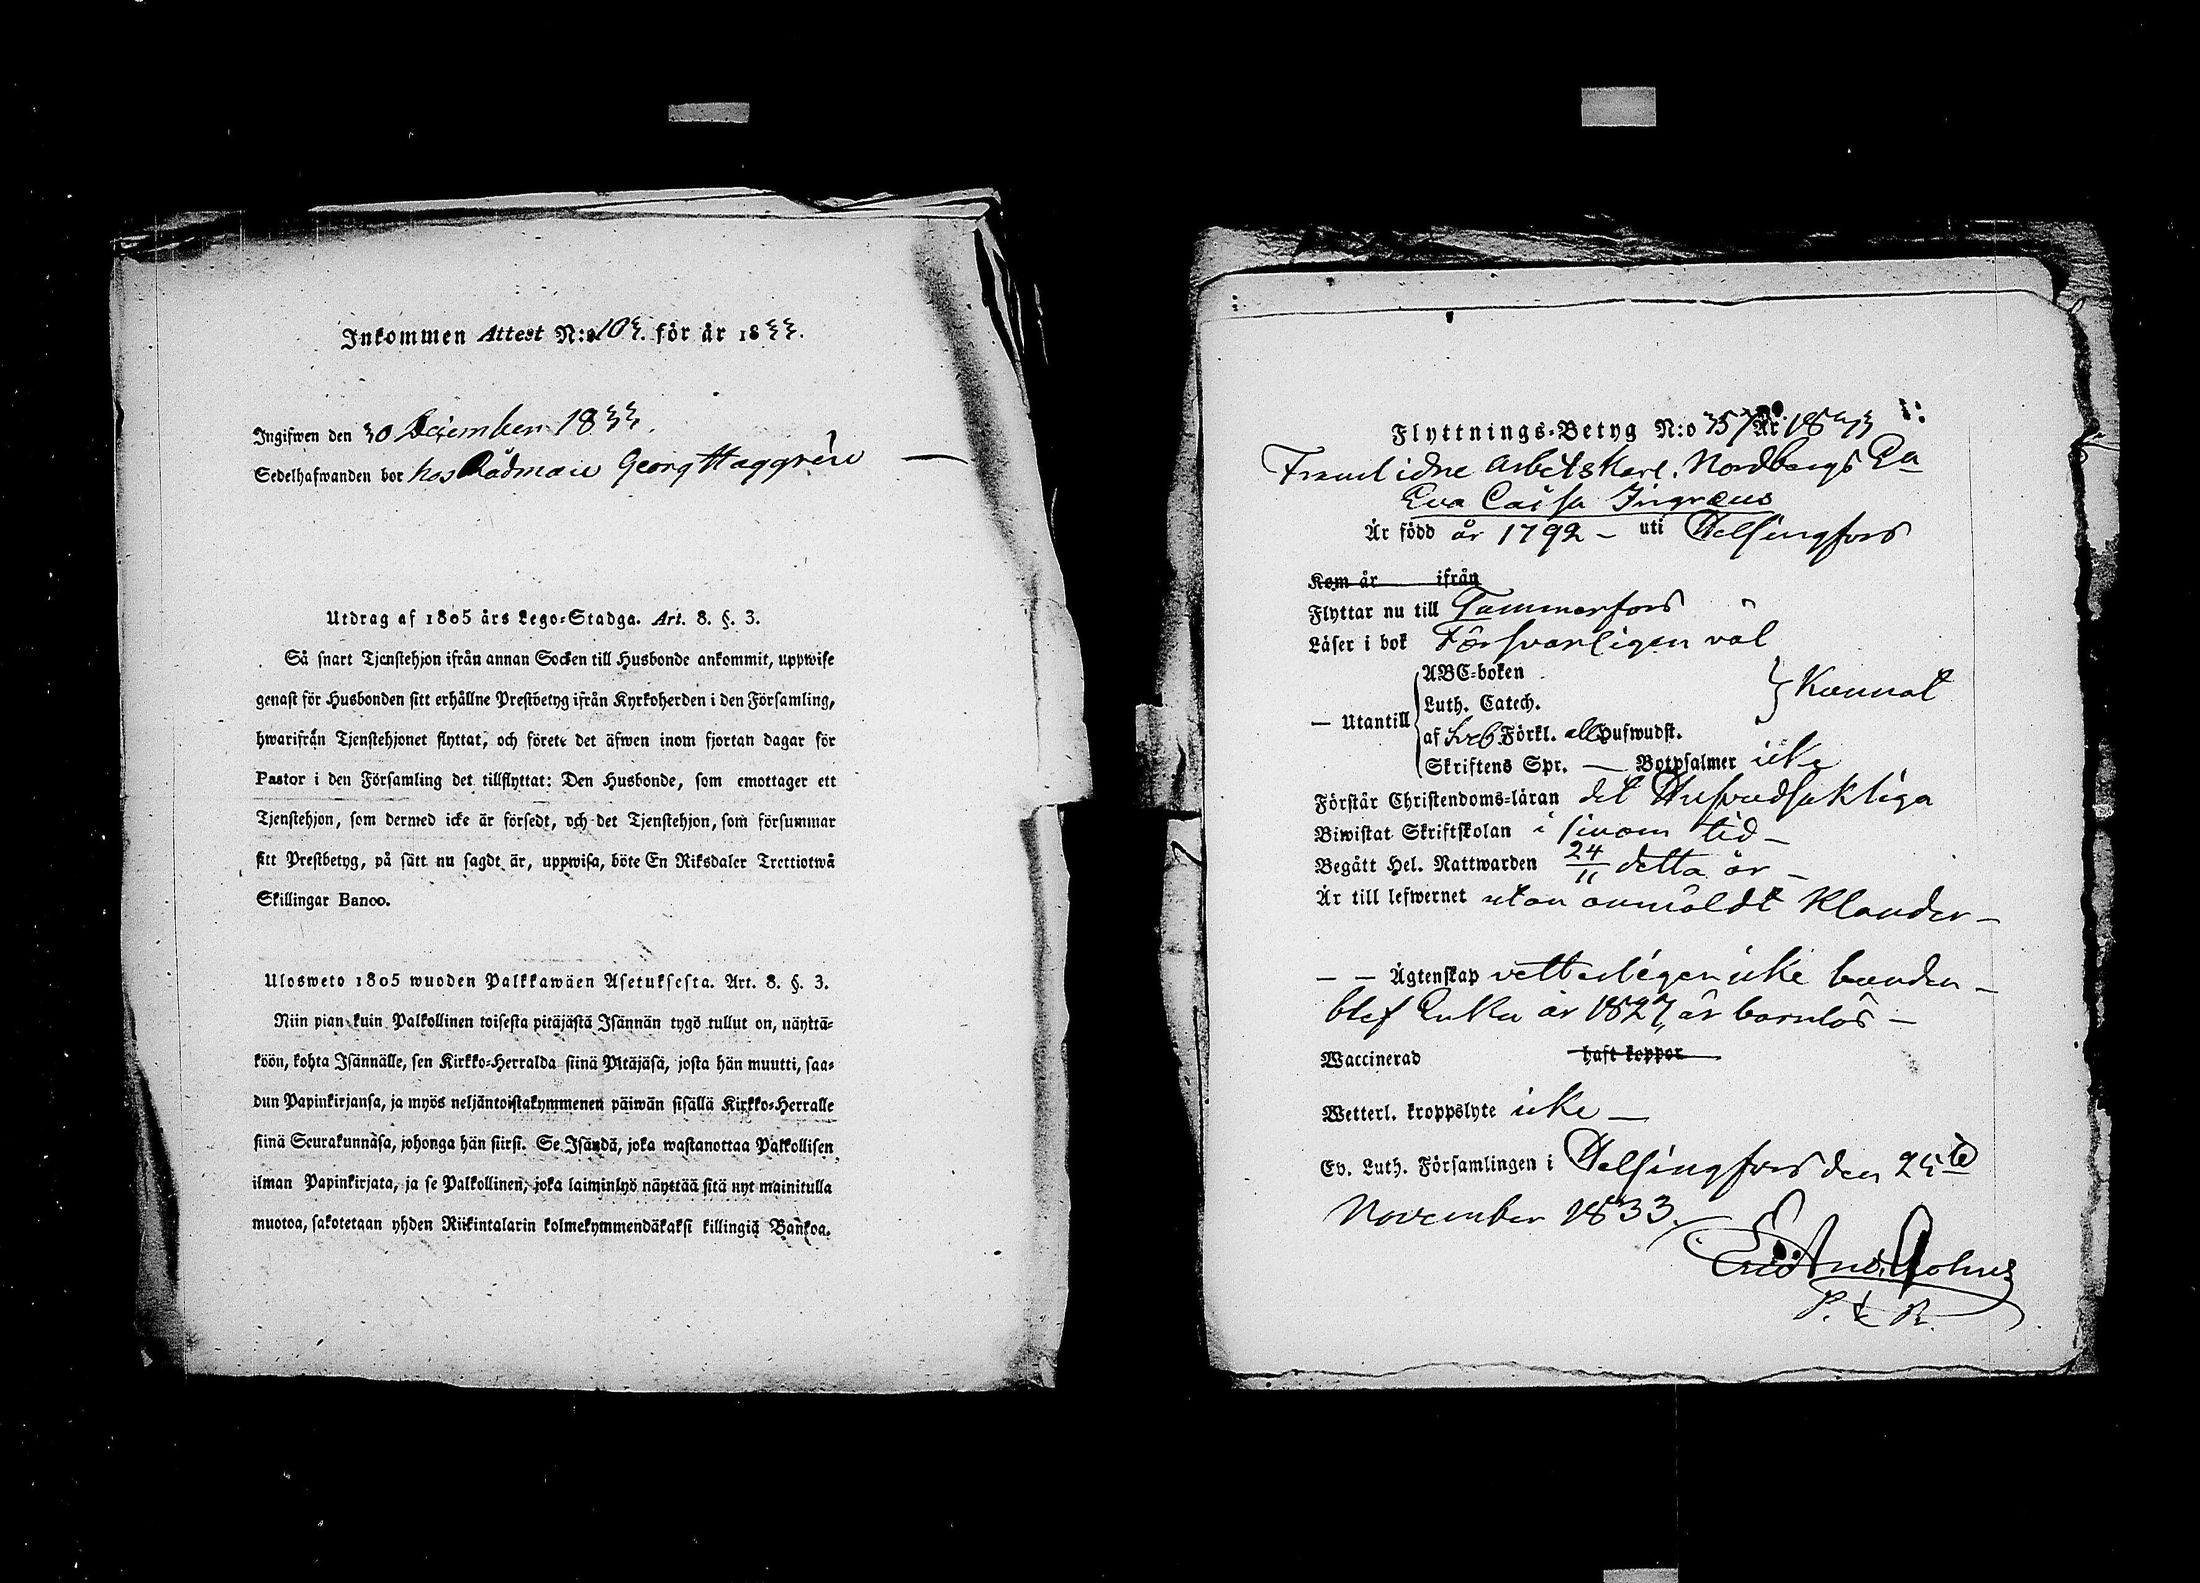 Inkommen Attest N:o 103. för år 1833.
Ingifwen den 30 December 1833.
Sedelhafwanden bor hos Rådman Georg Haggrén —
Utdrag af 1805 års Lego-Stadga. Art. 8. §. 3.
Så snart Tjenstehjon ifrån annan Socken till Husbonde ankommit, uppwise
genast för Husbonden sitt erhållne Prestbetyg ifrån Kyrkoherden i den Församling,
hwarifrån Tjenstehjonet flyttat, och förete det äfwen inom fjortan dagar för
Pastor i den Församling det tillflyttat: Den Husbonde, som emottager ett
Tjenstehjon, som dermed icke är försedt, och det Tjenstehjon, som försummar
sitt Prestbetyg, på sätt nu sagdt är, uppwisa, böte En Riksdaler Trettiotwå
Skillingar Banco.
Ulosweto 1805 wuoden Palkkawäen Asetuksesta. Art. 8. §. 3.
Niin pian kuin Palkollinen toisesta pitäjästä Isännän tygö tullut on, näyttä-
köön, kohta Isännälle, sen Kirkko-Herralda siinä Pitäjäsä, josta hän muutti, saa-
dun Papinkirjansa, ja myös neljäntoistakymmenen päiwän sisällä Kirkko-Herralle
siinä Seurakunnasa, johonga hän siirsi. Se Isändä, joka wastanottaa Palkollisen
ilman Papinkirjata, ja se Palkollinen, joka laiminlyö näyttää sitä nyt mainitulla
muotoa, sakotetaan yhden Riikintalarin kolmekymmendäkaksi killingiä Bankoa.
Flyttnings-Betyg N:o 357 År 1833
Framlidne Arbetskarl. Nordbergs Ea
Eva Caisa Ingræus
Är född år 1792 – uti Helsingfors
Kom år ifrån
Flyttar nu till Tammerfors
Läser i bok Försvarligen väl
— Utantill
ABC-boken
Luth. Catech.
} Kunnat
af Sveb Förkl. alla Hufwudst.
Skriftens Spr. — Botpsalmer icke
Förstår Christendoms-läran det Hufvudsakliga
Biwistat Skriftskolan i sinom tid –
Begått Hel. Nattwarden 24/11 detta år –
Är till lefwernet utan anmäldt klander –
– – Ägtenskap vetterligen icke bunden –
blef Enka år 1827, är barnlös –
Waccinerad haft koppor
Wetterl. kroppslyte icke —
Ev. Luth. Församlingen i Helsingfors den 25te
November 1833.